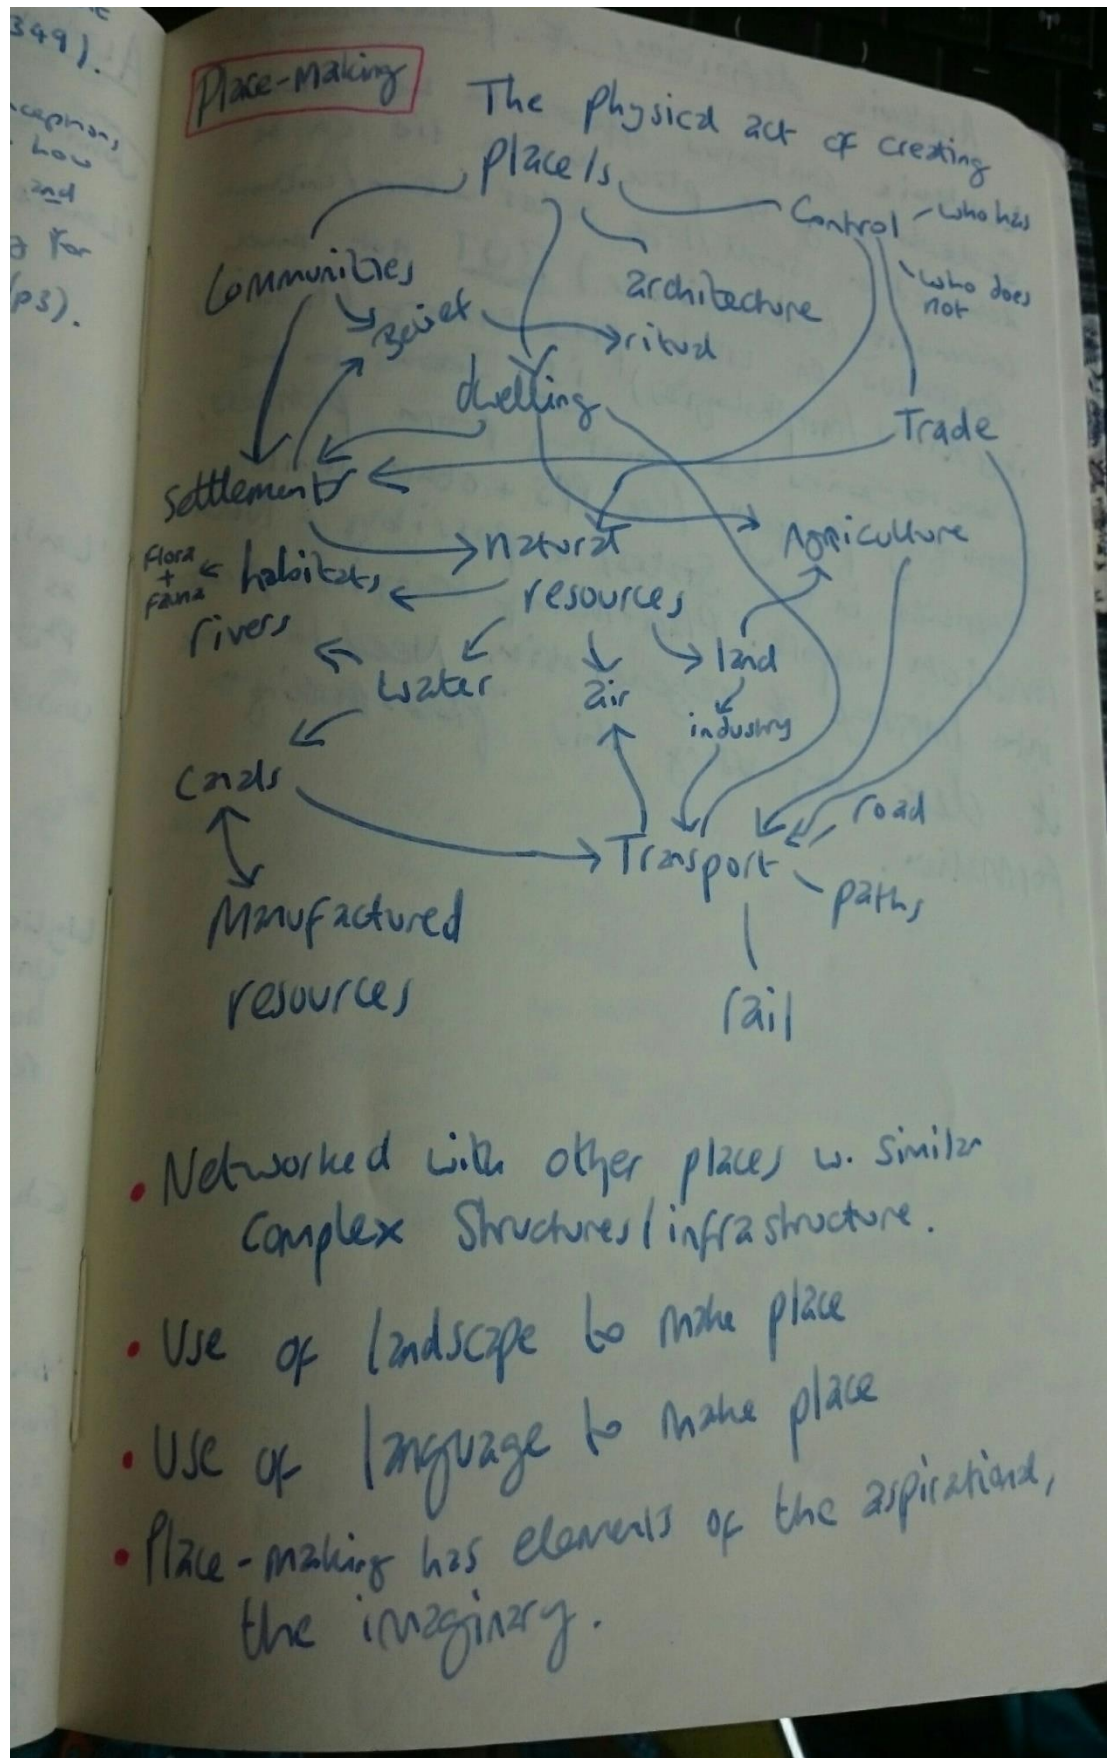 349).
how
and
for
(p3).
Place-Making
The physical act of creating
place/s
Control
who has
who does
not
Communities
architecture
Belief
ritual
dwelling
Trade
Settlements
natural
resources
Agriculture
flora
+
fauna
habitats
rivers
water
air
land
industry
Canals
Transport
road
paths
rail
Manufactured
resources
• Networked with other places w. similar
complex structures/infrastructure.
• Use of landscape to make place
• Use of language to make place
• Place-making has elements of the aspirational,
the imaginary.